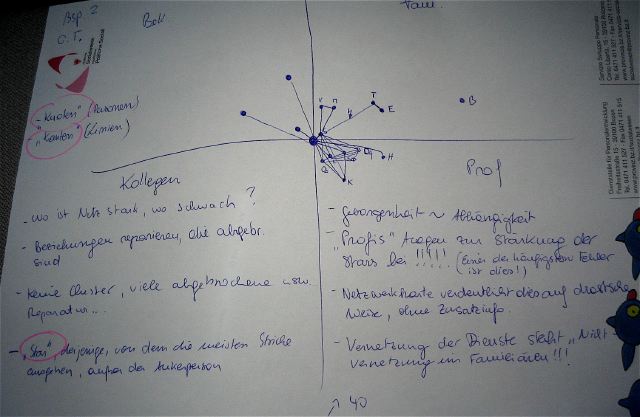 Bsp 2
C. T.
Fam.
- "Knoten" (Personen)
"Kanten" (Linien)
T
E
B
H
K
Kollegen
Prof
- Wo ist Netz stark, wo schwach?
- Beziehungen reparieren, die abgebr.
sind
- Keine Cluster, viele abgebrochene usw.
Reparatur...
- "Star" derjenige, von dem die meisten Striche
ausgehen, außer der Ankerperson
- Geborgenheit ~ Abhängigkeit
- "Profis" tragen zur Stärkung der
Stars bei !!!!! (Einer der häufigsten Fehler
ist dies!)
- Netzwerkkarte verdeutlicht dies auf drastische
Weise, ohne Zusatzinfo.
- Vernetzung der Dienste steht "Nicht-
vernetzung im Familiären"!!!
↗ 40